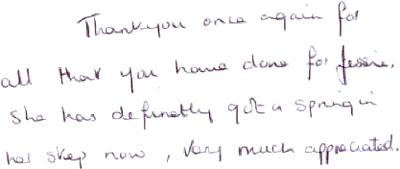 Thankyou once again for
all that you have done for Jessie,
She has definetly got a spring in
her step now, Very much appreciated.